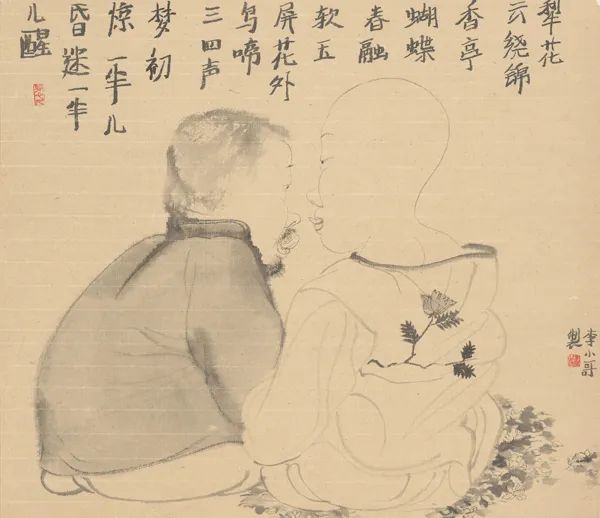 犁花
云绕锦
香亭
蝴蝶
春融
软五
屏花外
鸟啼
三四声
梦初
惊一半儿
昏迷一半
儿醒
李小哥
製